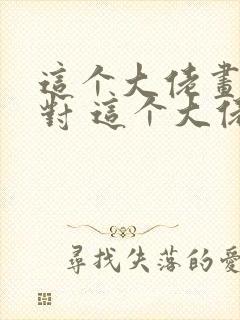 這个大佬畫
對 這个大佬
尋找失落的愛